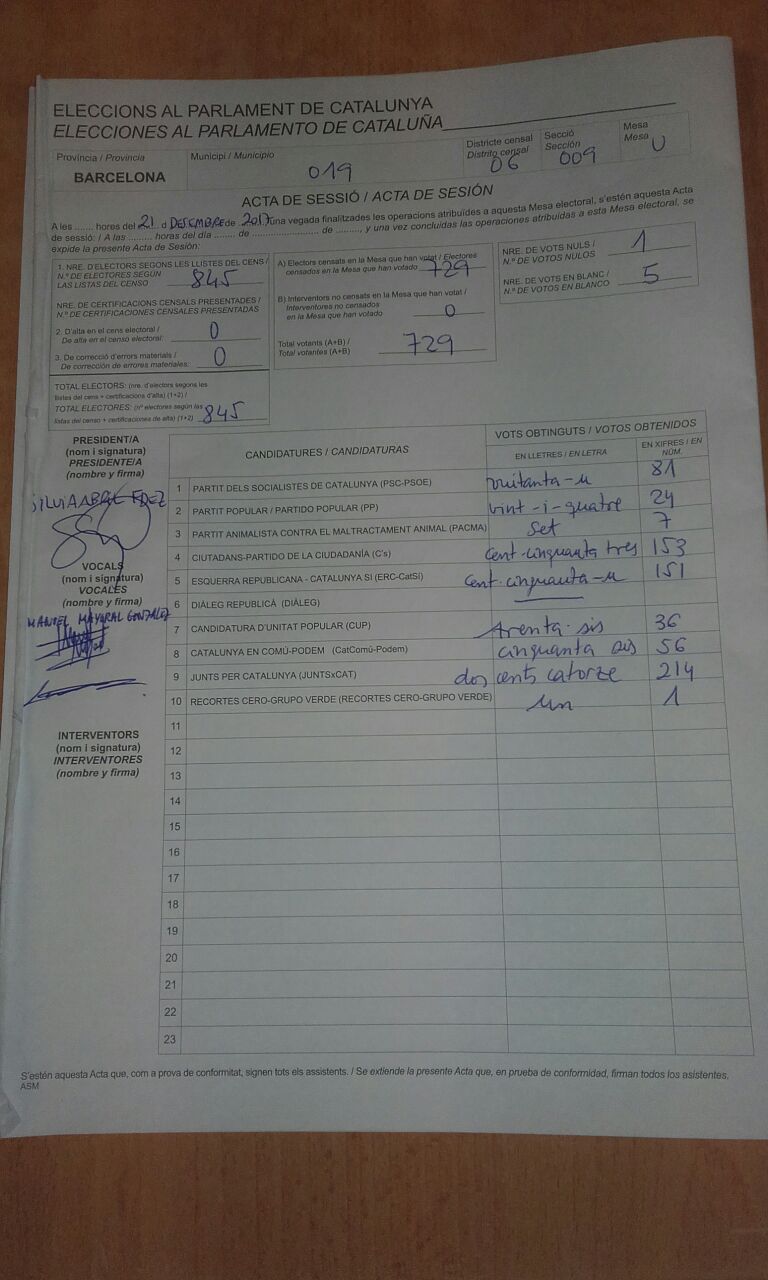 ELECCIONS AL PARLAMENT DE CATALUNYA
ELECCIONES AL PARLAMENTO DE CATALUÑA
Provincia / Provincia
BARCELONA
Municipi / Municipio
019
Districte censal
Distrito censal
06
Secció
Sección
009
Mesa
Mesa
U
ACTA DE SESSIÓ / ACTA DE SESIÓN
A les ....... hores del 21 d DESEMBRE de 2017, una vegada finalitzades les operacions atribuïdes a aquesta Mesa electoral, s'estén aquesta Acta
de sessió: / A las ......... hores del día ........ de ...................... de ........, y una vez concluidas las operaciones atribuidas a esta Mesa electoral, se
expide la presente Acta de Sesión:
1. NRE. D'ELECTORS SEGONS LES LLISTES DEL CENS /
N.º DE ELECTORES SEGÚN
LAS LISTAS DEL CENSO
845
NRE. DE CERTIFICACIONS CENSALS PRESENTADES /
N.º DE CERTIFICACIONES CENSALES PRESENTADAS
2. D'alta en el cens electoral /
De alta en el censo electoral:
0
3. De correcció d'errors materials /
De corrección de errores materiales:
0
TOTAL ELECTORS: (nre. d'electors segons les
llistes del cens + certificacions d'alta) (1+2) /
TOTAL ELECTORES: (nº electores según las
listas del censo + certificaciones de alta) (1+2)
845
A) Electors censats en la Mesa que han votat / Electores
censados en la Mesa que han votado
729
B) Interventors no censats en la Mesa que han votat /
Interventores no censados
en la Mesa que han votado
0
Total votants (A+B) /
Total votantes (A+B)
729
NRE. DE VOTS NULS /
N.º DE VOTOS NULOS
1
NRE. DE VOTS EN BLANC /
N.º DE VOTOS EN BLANCO
5
PRESIDENT/A
(nom i signatura)
PRESIDENTE/A
(nombre y firma)
VOCALS
(nom i signatura)
VOCALES
(nombre y firma)
MANUEL MAYORAL GONZALEZ
INTERVENTORS
(nom i signatura)
INTERVENTORES
(nombre y firma)
CANDIDATURES / CANDIDATURAS
VOTS OBTINGUTS / VOTOS OBTENIDOS
EN LLETRES / EN LETRA
EN XIFRES / EN NÚM.
1 PARTIT DELS SOCIALISTES DE CATALUNYA (PSC-PSOE) vuitanta-u 81
2 PARTIT POPULAR / PARTIDO POPULAR (PP) vint-i-quatre 24
3 PARTIT ANIMALISTA CONTRA EL MALTRACTAMENT ANIMAL (PACMA) set 7
4 CIUTADANS-PARTIDO DE LA CIUDADANÍA (C's) cent-cinquanta tres 153
5 ESQUERRA REPUBLICANA - CATALUNYA SI (ERC-CatSí) cent-cinquanta-u 151
6 DIÀLEG REPUBLICÀ (DIÀLEG)
7 CANDIDATURA D'UNITAT POPULAR (CUP) trenta-sis 36
8 CATALUNYA EN COMÚ-PODEM (CatComú-Podem) cinquanta sis 56
9 JUNTS PER CATALUNYA (JUNTSxCAT) dos cents catorze 214
10 RECORTES CERO-GRUPO VERDE (RECORTES CERO-GRUPO VERDE) un 1
11
12
13
14
15
16
17
18
19
20
21
22
23
S'estén aquesta Acta que, com a prova de conformitat, signen tots els assistents. / Se extiende la presente Acta que, en prueba de conformidad, firman todos los asistentes.
ASM